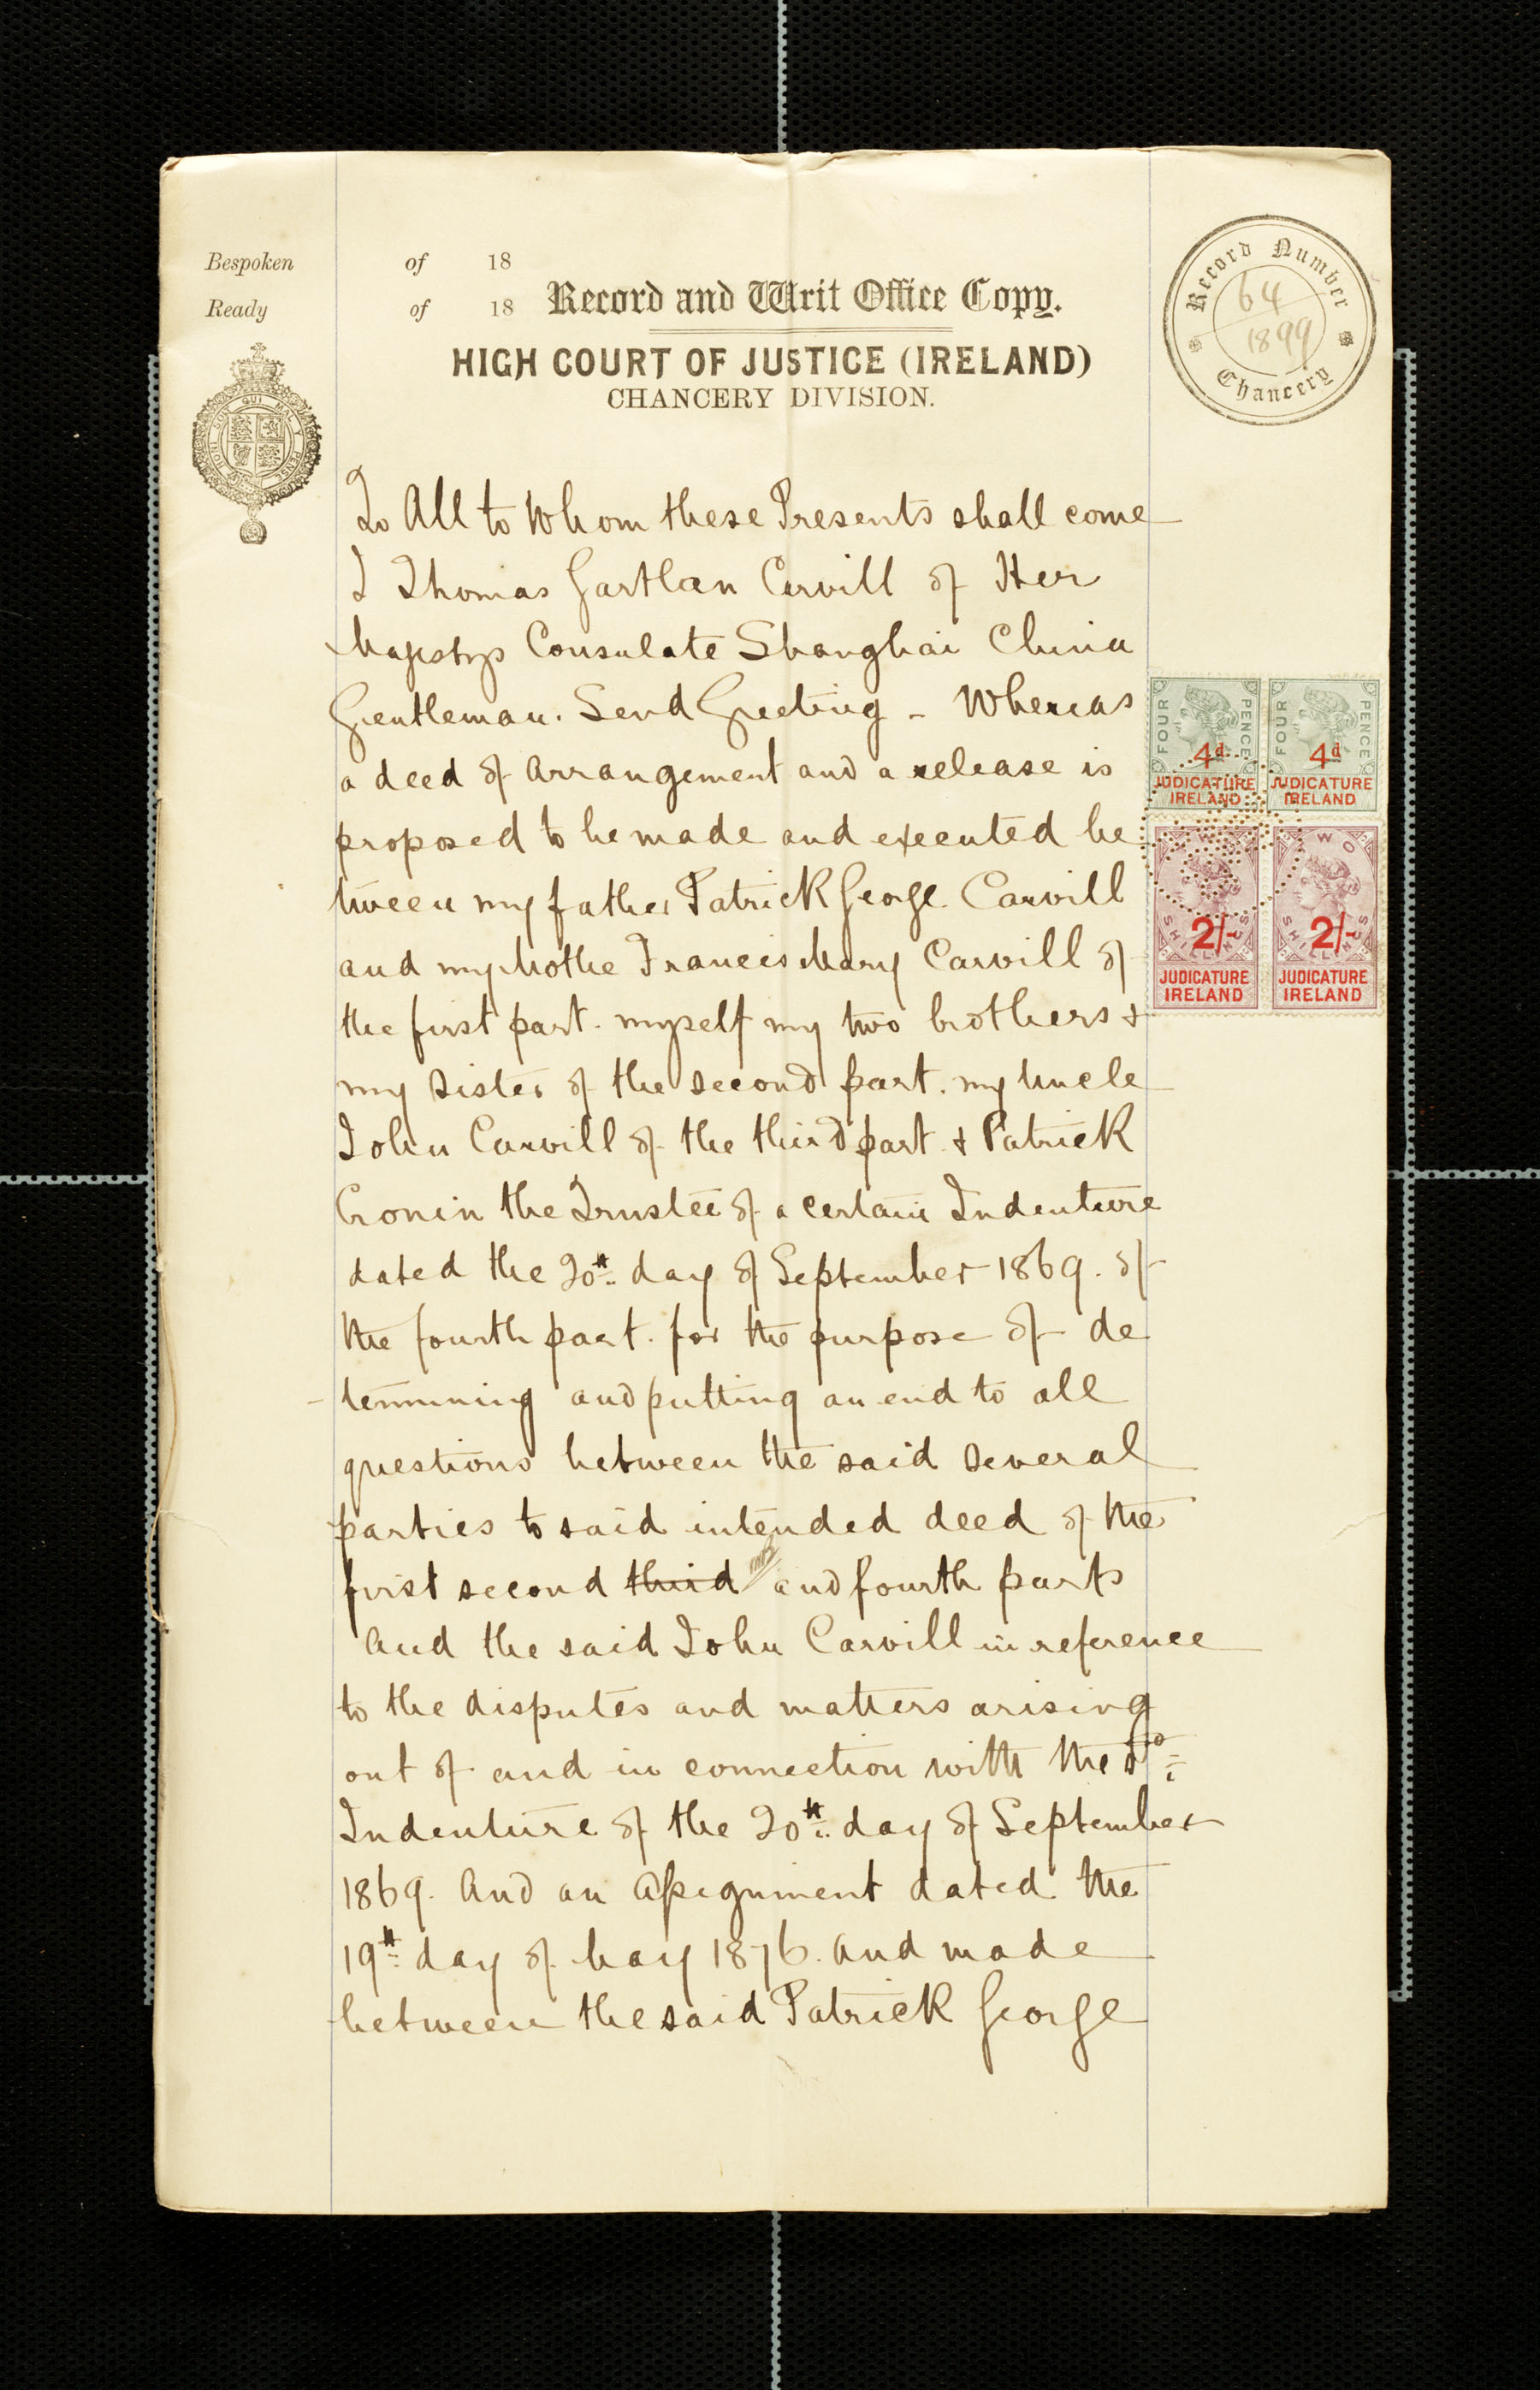 Bespoken of 18
Ready of 18
Record and Writ Office Copy.
HIGH COURT OF JUSTICE (IRELAND)
CHANCERY DIVISION.
Record Number
64
1899
Chancery
To All to Whom these Presents shall come
I Thomas Gartlan Carvill of Her
Majestys Consulate Shanghai China
Gentleman. Send Greeting - Whereas
a deed of arrangement and a release is
proposed to be made and executed be
tween my father Patrick George Carvill
and my Mothe Frances Mary Carvill of
the first part. myself my two brothers &
my sister of the second part. my Uncle
John Carvill of the third part & Patrick
Cronin the Trustee of a certain Indenture
dated the 20th day of September 1869. of
the fourth part. for the purpose of de
termining and putting an end to all
questions between the said several
parties to said intended deed of the
first second third and fourth parts
And the said John Carvill in reference
to the disputes and matters arising
out of and in connection with the sd
Indenture of the 20th day of September
1869. And an Assignment dated the
19th day of May 1876. And made
between the said Patrick George
FOUR PENCE
4d
JUDICATURE
IRELAND
FOUR PENCE
4d
JUDICATURE
IRELAND
2/-
JUDICATURE
IRELAND
TWO SHILLINGS
2/-
JUDICATURE
IRELAND